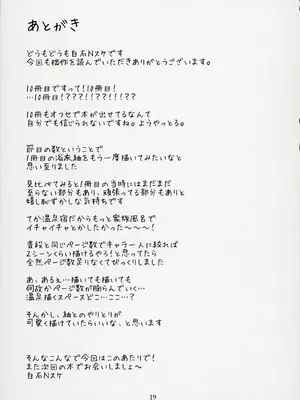 あとがき
どうもどうも白石Nスケです
今回も拙作を読んでいただきありがとうございます。
10冊目ですって!10冊目!
…10冊目!???!??!!??!!
10冊もオフセで本が出せてるなんて
自分でも信じられないですね。ようやっとる。
節目の数ということで
1冊目の浴衣紬をもう一度描いてみたいなと
思い至りました
見比べてみると1冊目の当時にはまだまだ
至らない部分もあり、頑張ってる部分もありと
嬉し恥ずかしな気持ちです
てか温泉宿だからもっと家族風呂で
イチャイチャとかしたかった~~~!
普段と同じページ数でキャラ一人に絞れば
2シーンくらい描けるやろ!と思ってたら
全然ページ数足りなくてびっくりしました
あ、あるぇ…描いても描いても
何故かページ数が膨らんでいく…
温泉描くスペースどこ…こ…?
そんかし、紬とのやりとりが
可愛く描けていたらいいな、と思います
そんなこんなで今回はこのあたりで!
また次回の本でお会いしましょ~
白石Nスケ
19